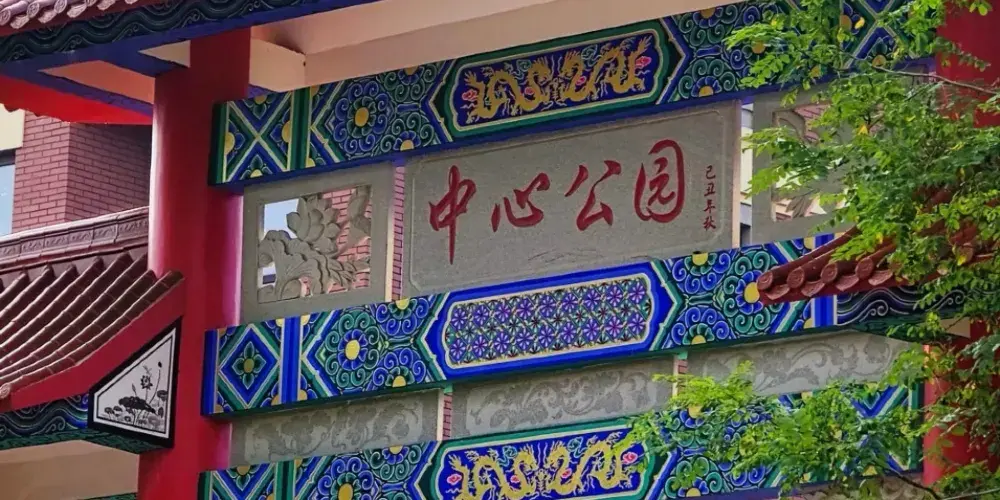 中心公园
己丑年秋